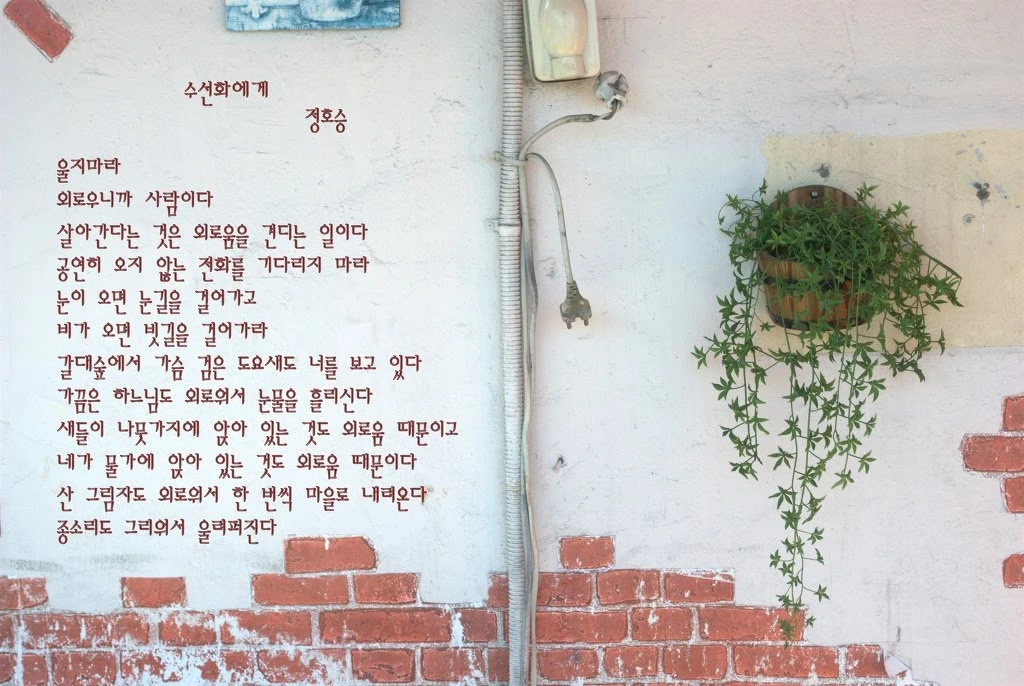 수선화에게
정호승
울지마라
외로우니까 사람이다
살아간다는 것은 외로움을 견디는 일이다
공연히 오지 않는 전화를 기다리지 마라
눈이 오면 눈길을 걸어가고
비가 오면 빗길을 걸어가라
갈대숲에서 가슴 검은 도요새도 너를 보고 있다
가끔은 하느님도 외로워서 눈물을 흘리신다
새들이 나뭇가지에 앉아 있는 것도 외로움 때문이고
네가 물가에 앉아 있는 것도 외로움 때문이다
산 그림자도 외로워서 한 번씩 마을로 내려온다
종소리도 그리워서 울려퍼진다